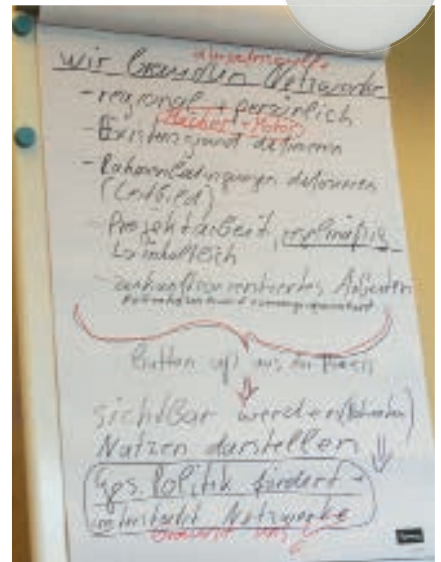 wir brauchen Netzwerke
- regional + persönlich
Macher + Motor
- Existenzgrund definieren
- Rahmenbedingungen definieren
(Leitbild)
- Projektarbeit, regelmäßig
- zukunftsorientiertes Arbeiten
Button up aus der Praxis
sichtbar werden
Nutzen darstellen
Ges. Politik fördert +
Netzwerke
braucht uns